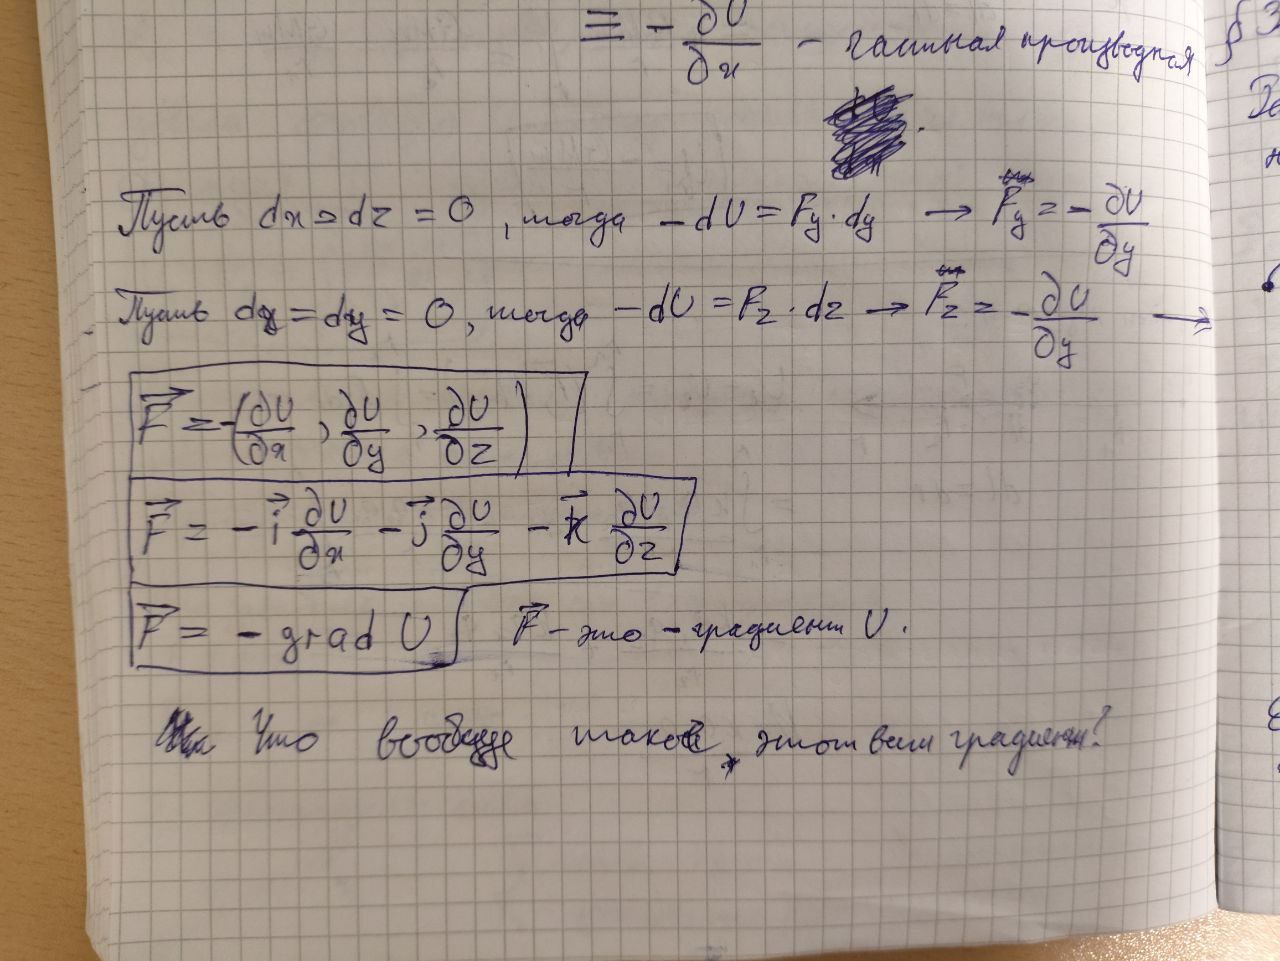 ≡ - ∂U/∂x - частная производная
Пусть dx = dz = 0, тогда - dU = Fy · dy → Fy = - ∂U/∂y
Пусть dx = dy = 0, тогда - dU = Fz · dz → Fz = - ∂U/∂y →
F⃗ = -(∂U/∂x, ∂U/∂y, ∂U/∂z)
F⃗ = - i⃗ ∂U/∂x - j⃗ ∂U/∂y - k⃗ ∂U/∂z
F⃗ = - grad U F⃗ - это - градиент U.
Что вообще такое, этот ваш градиент?
§ 3